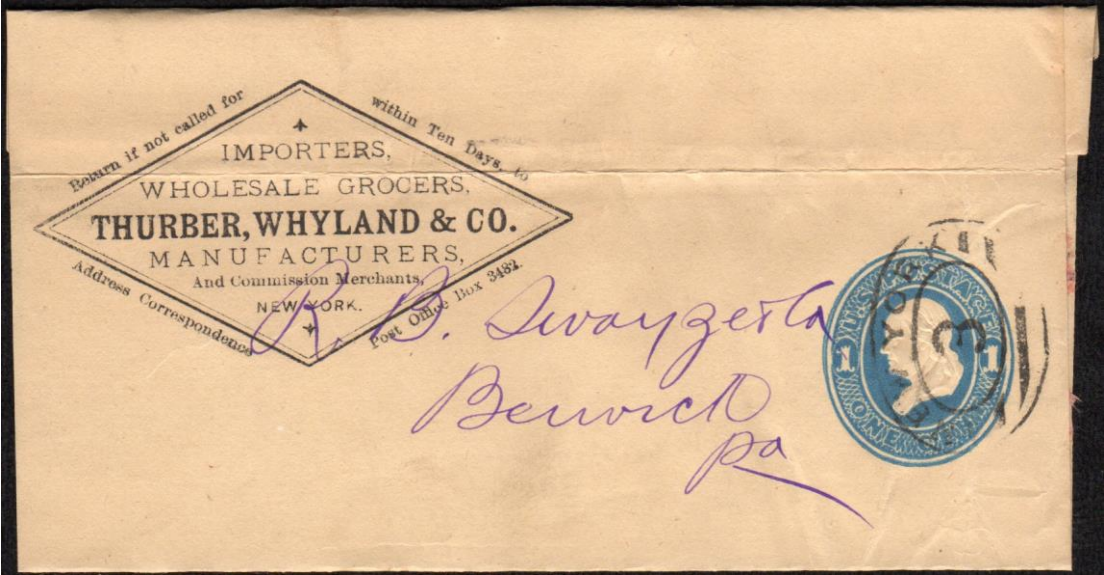 Return if not called for within Ten Days, to
IMPORTERS,
WHOLESALE GROCERS,
THURBER, WHYLAND & CO.
MANUFACTURERS,
And Commission Merchants,
NEW YORK.
Address Correspondence Post Office Box 3482.
R. B.
Berwick
Pa
U.S. POSTAGE
1 1
ONE CENT
NEW YORK
3